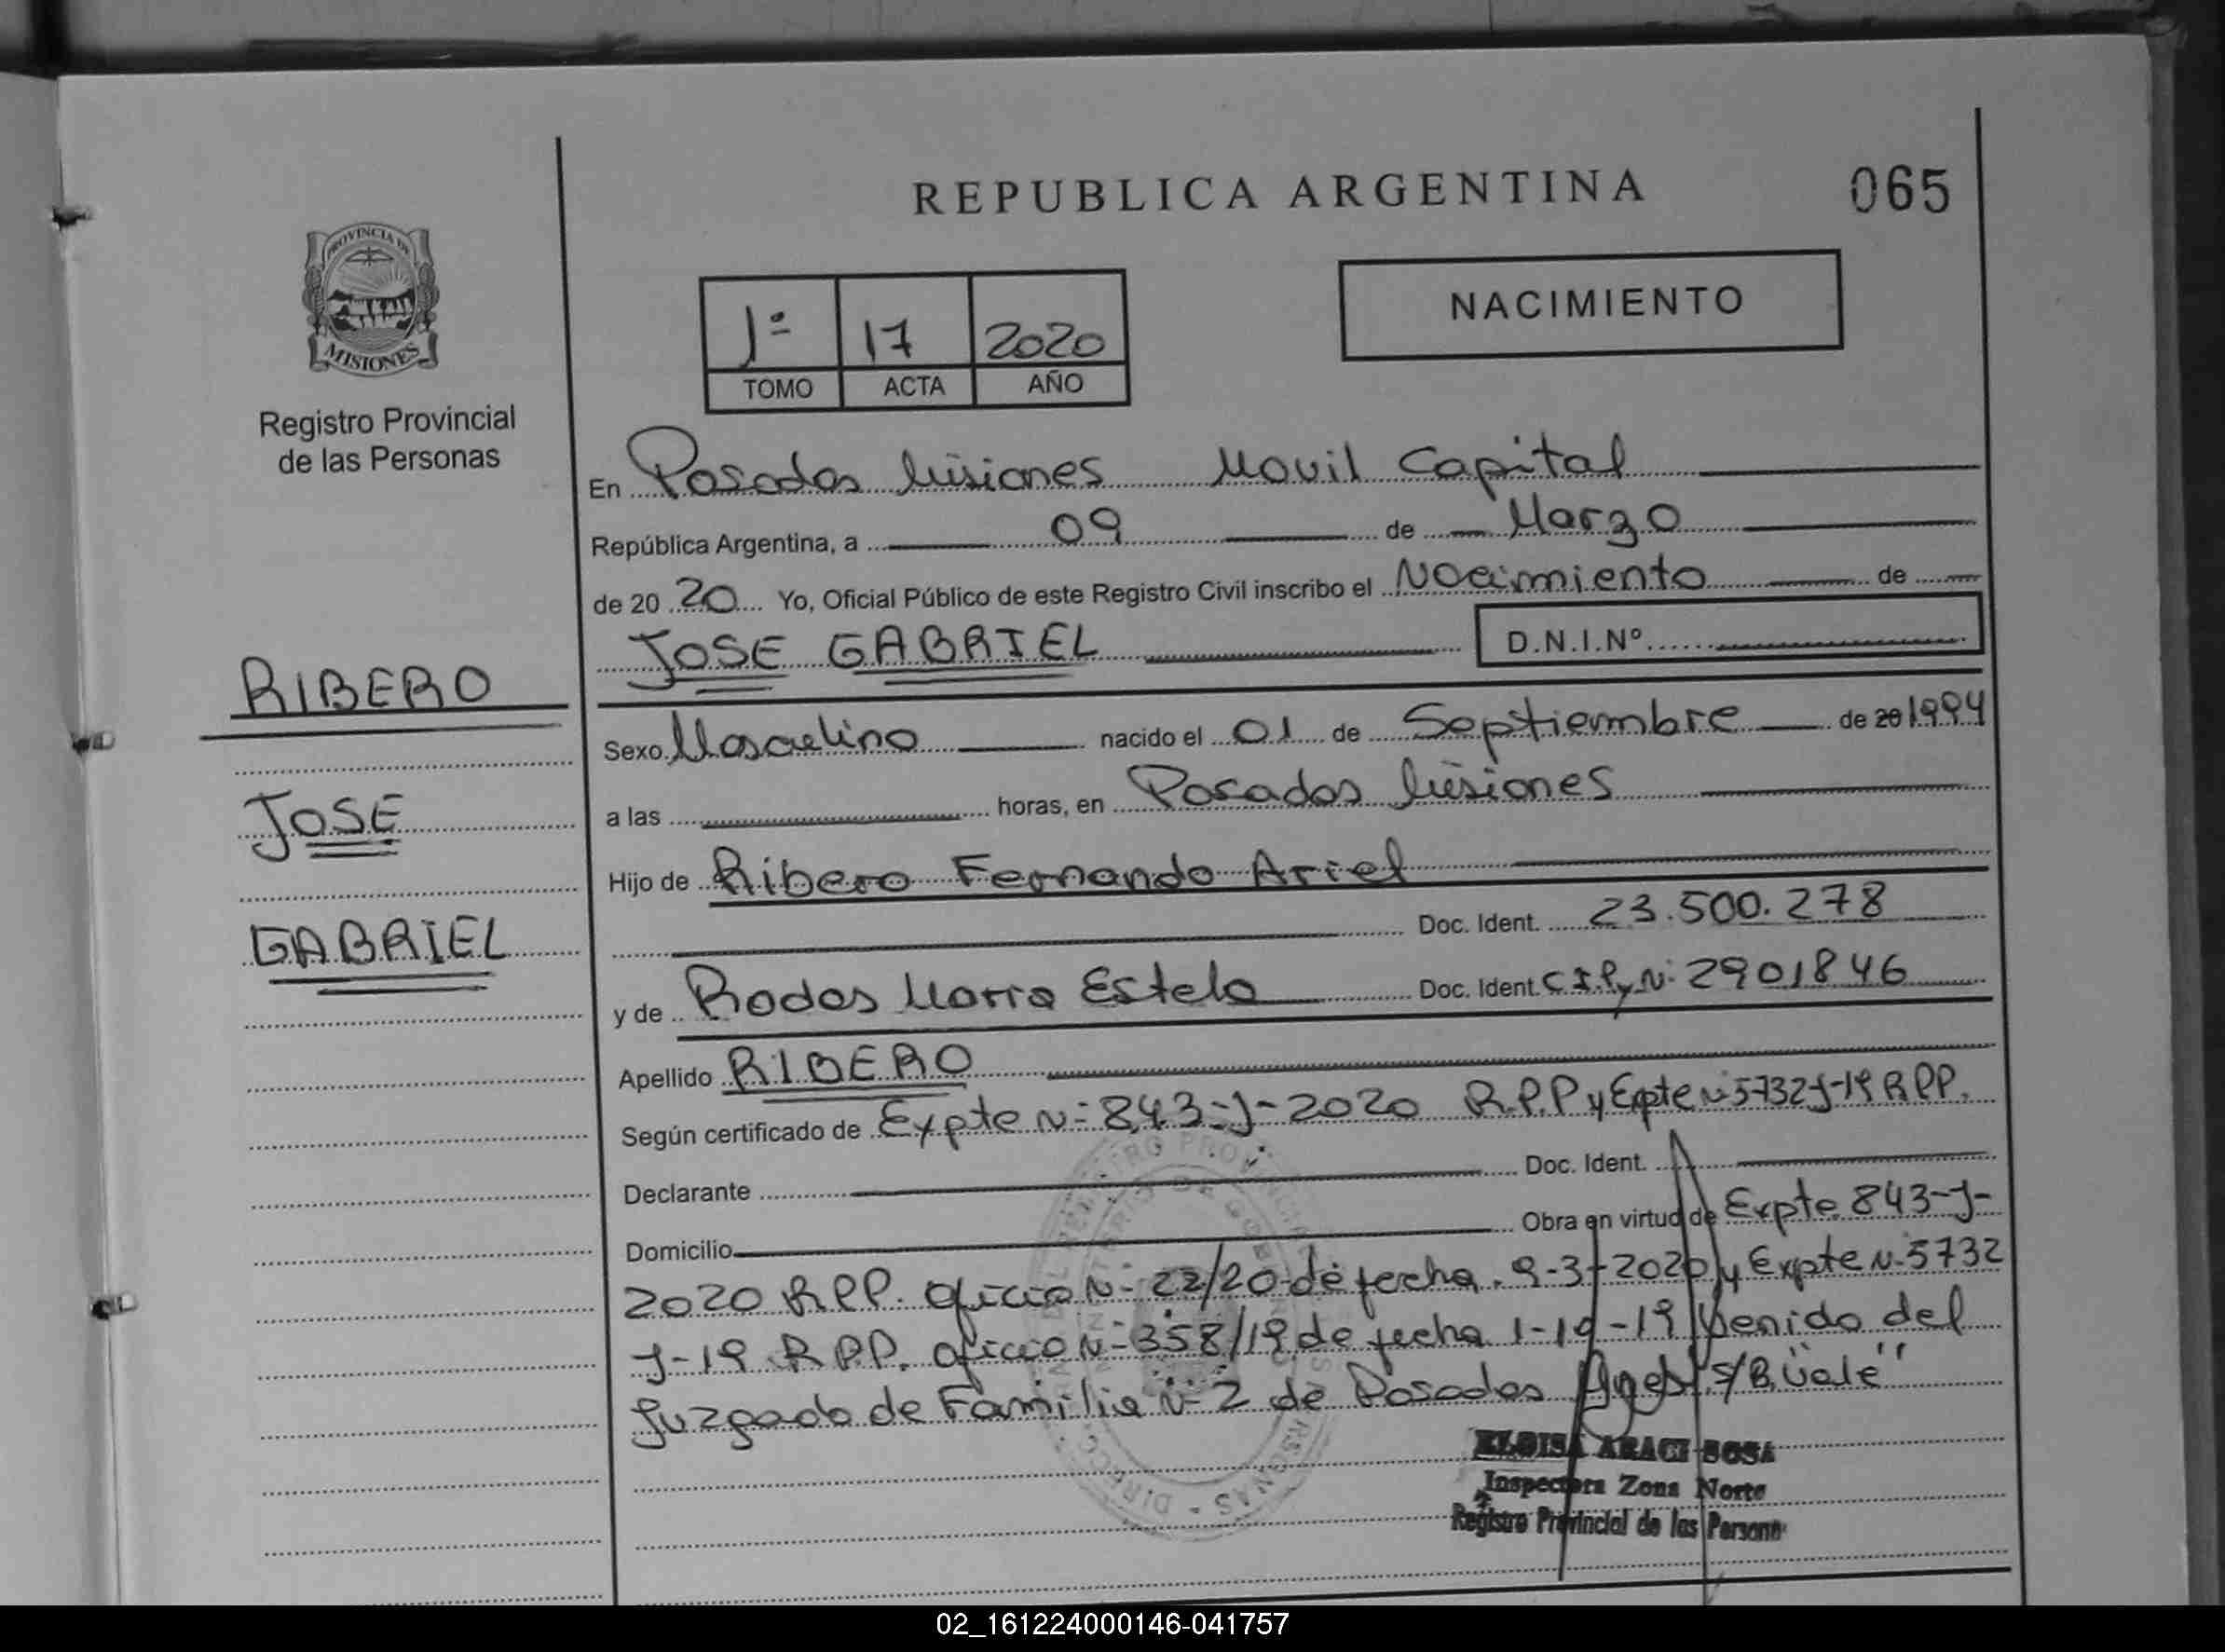 REPUBLICA ARGENTINA
065
PROVINCIA DE
MISIONES
Registro Provincial
de las Personas
NACIMIENTO
1º 17 2020
TOMO ACTA AÑO
En Posadas Misiones Movil Capital
República Argentina, a 09 de Marzo
de 20 20 Yo, Oficial Público de este Registro Civil inscribo el Nacimiento de
JOSE GABRIEL D.N.I.Nº
RIBERO
JOSE
GABRIEL
Sexo Masculino nacido el 01 de Septiembre de 20 1994
a las horas, en Posadas Misiones
Hijo de Ribero Fernando Ariel
Doc. Ident. 23.500.278
y de Rodas Maria Estela Doc. Ident. C.I.P.y N: 2901846
Apellido RIBERO
Según certificado de Expte Nº 843-J-2020 R.P.P y Expte Nº 5732 J-19 RPP.
Declarante Doc. Ident.
Domicilio Obra en virtud de Expte 843-J-
2020 RPP. Oficio Nº 22/20 de fecha 9-3-2020 y Expte Nº 5732
J-19 RPP. Oficio Nº 358/19 de fecha 1-10-19 Venido del
Juzgado de Familia Nº 2 de Posadas S/B, "Vale"
ELOISA ARACI SOSA
Inspectora Zona Norte
Registro Provincial de las Persona
02_161224000146-041757